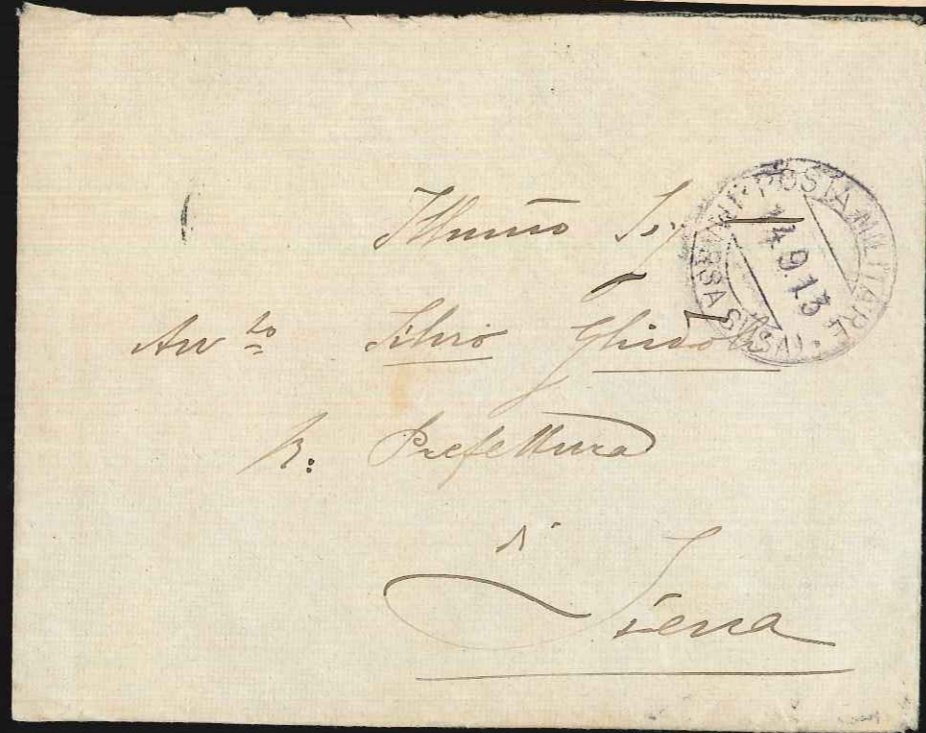 Illmo Sig
Avv to Silvio Ghidoli
R. Prefettura
di
Siena
POSTA MILITARE
14.9.13